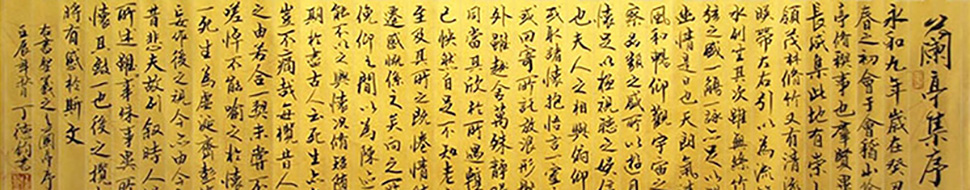 蘭亭集序
永和九年歲在癸
春之初會于會稽山
亭脩稧事也羣賢
長咸集此地有崇
領茂林脩竹又有清
映帶左右引以為流
水列坐其次雖無絲竹
弦之盛一觴一詠亦足以暢
幽情是日也天朗氣
風和暢仰觀宇宙
察品類之盛所以遊目
懷足以極視聽之娛信
也夫人之相與俯仰
或取諸懷抱悟言一室
或因寄所託放浪形骸
外雖趣舍萬殊靜躁
同當其欣於所遇暫
己怏然自足不知老
至及其所之既惓情
遷感慨係之矣向之所
俛仰之間以為陳迹
能不以之興懷況脩短
期於盡古人云死生亦
豈不痛哉每攬昔人
之由若合一契未嘗不
嗟悼不能喻之於懷
一死生為虛誕齊彭
妄作後之視今亦由今
昔悲夫故列敘時人
所述雖世殊事異所
懷其致一也後之攬
將有感於斯文
右書王羲之蘭亭序
壬辰年 丁 書